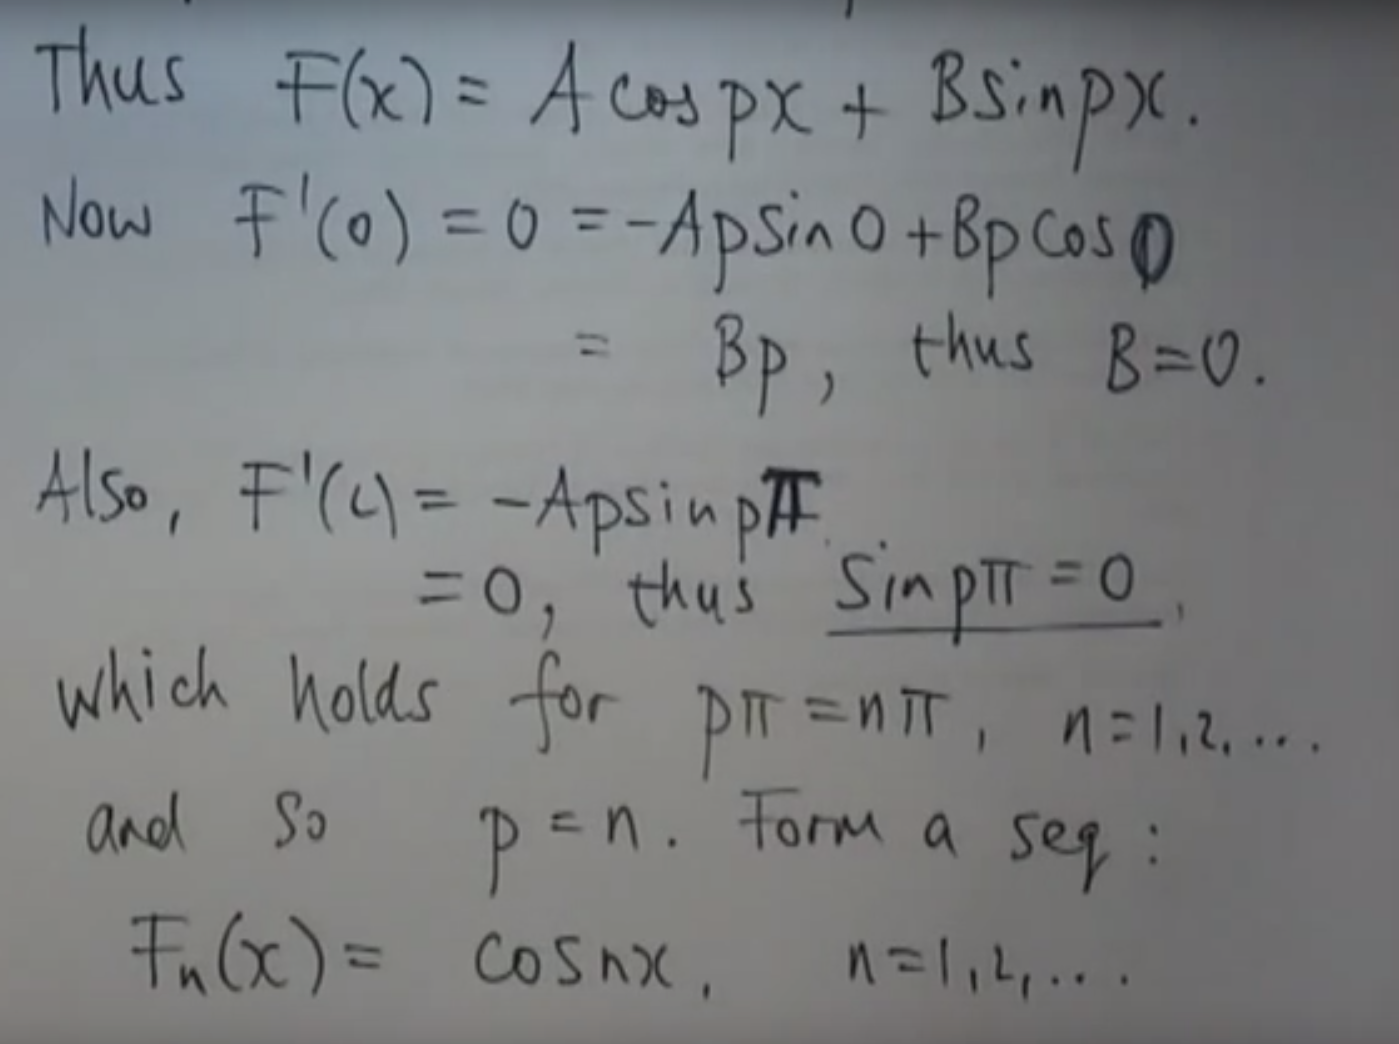 Thus F(x) = A cos px + B sin px.
Now F'(0) = 0 = -Ap sin 0 + Bp cos 0
= Bp, thus B=0.
Also, F'(L) = -Ap sin pπ
=0, thus sin pπ = 0,
which holds for pπ = nπ, n=1,2,...
and so p = n. Form a seq:
Fn(x) = cos nx, n=1,2,...